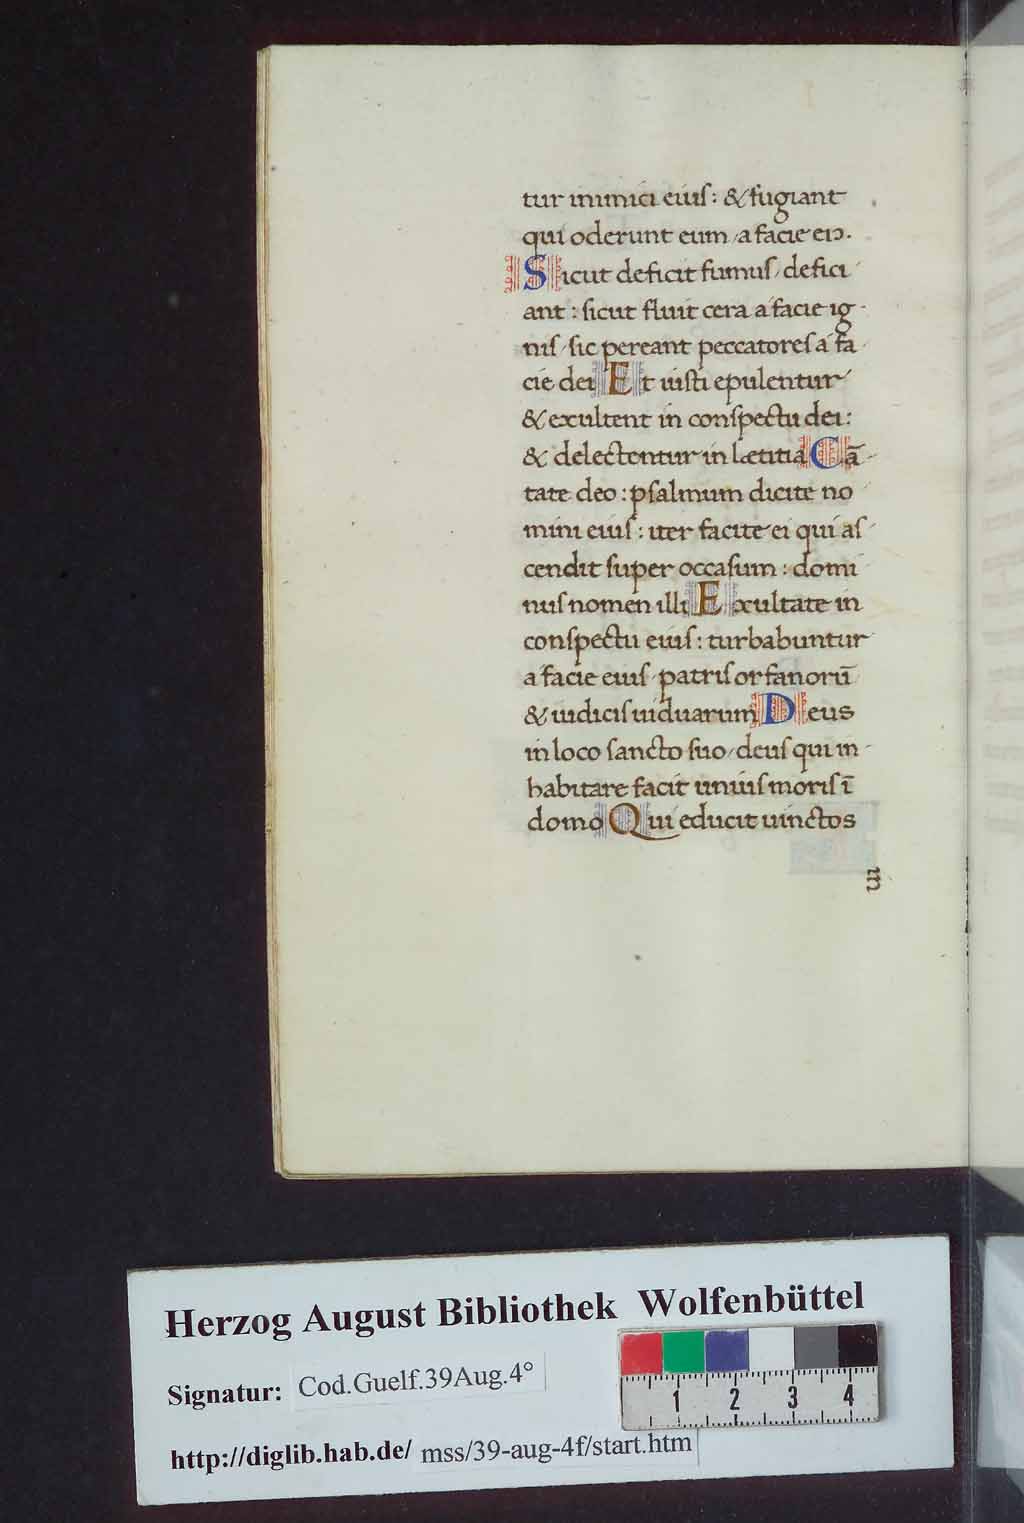 tur inimici eiuſ: & fugiant
qui oderunt eum, a facie eiꝰ.
Sicut deficit fumuſ, defici
ant: ſicut fluit cera a facie ig
niſ, ſic pereant peccatoreſ a fa
cie dei Et iuſti epulentur
& exultent in conſpectu dei:
& delectentur in lætitia Cā
tate deo: pſalmum dicite no
mini eiuſ: iter facite ei qui aſ
cendit ſuper occaſum: domi
nuſ nomen illi Exultate in
conſpectu eiuſ: turbabuntur
a facie eiuſ, patriſ orfanorū
& iudiciſ uiduarum Deus
in loco ſancto ſuo, deuſ qui in
habitare facit uniuſ moriſ ī
domo Qui educit uinctos
in
Herzog August Bibliothek Wolfenbüttel
Signatur: Cod.Guelf.39Aug.4°
1 2 3 4
http://diglib.hab.de/ mss/39-aug-4f/start.htm